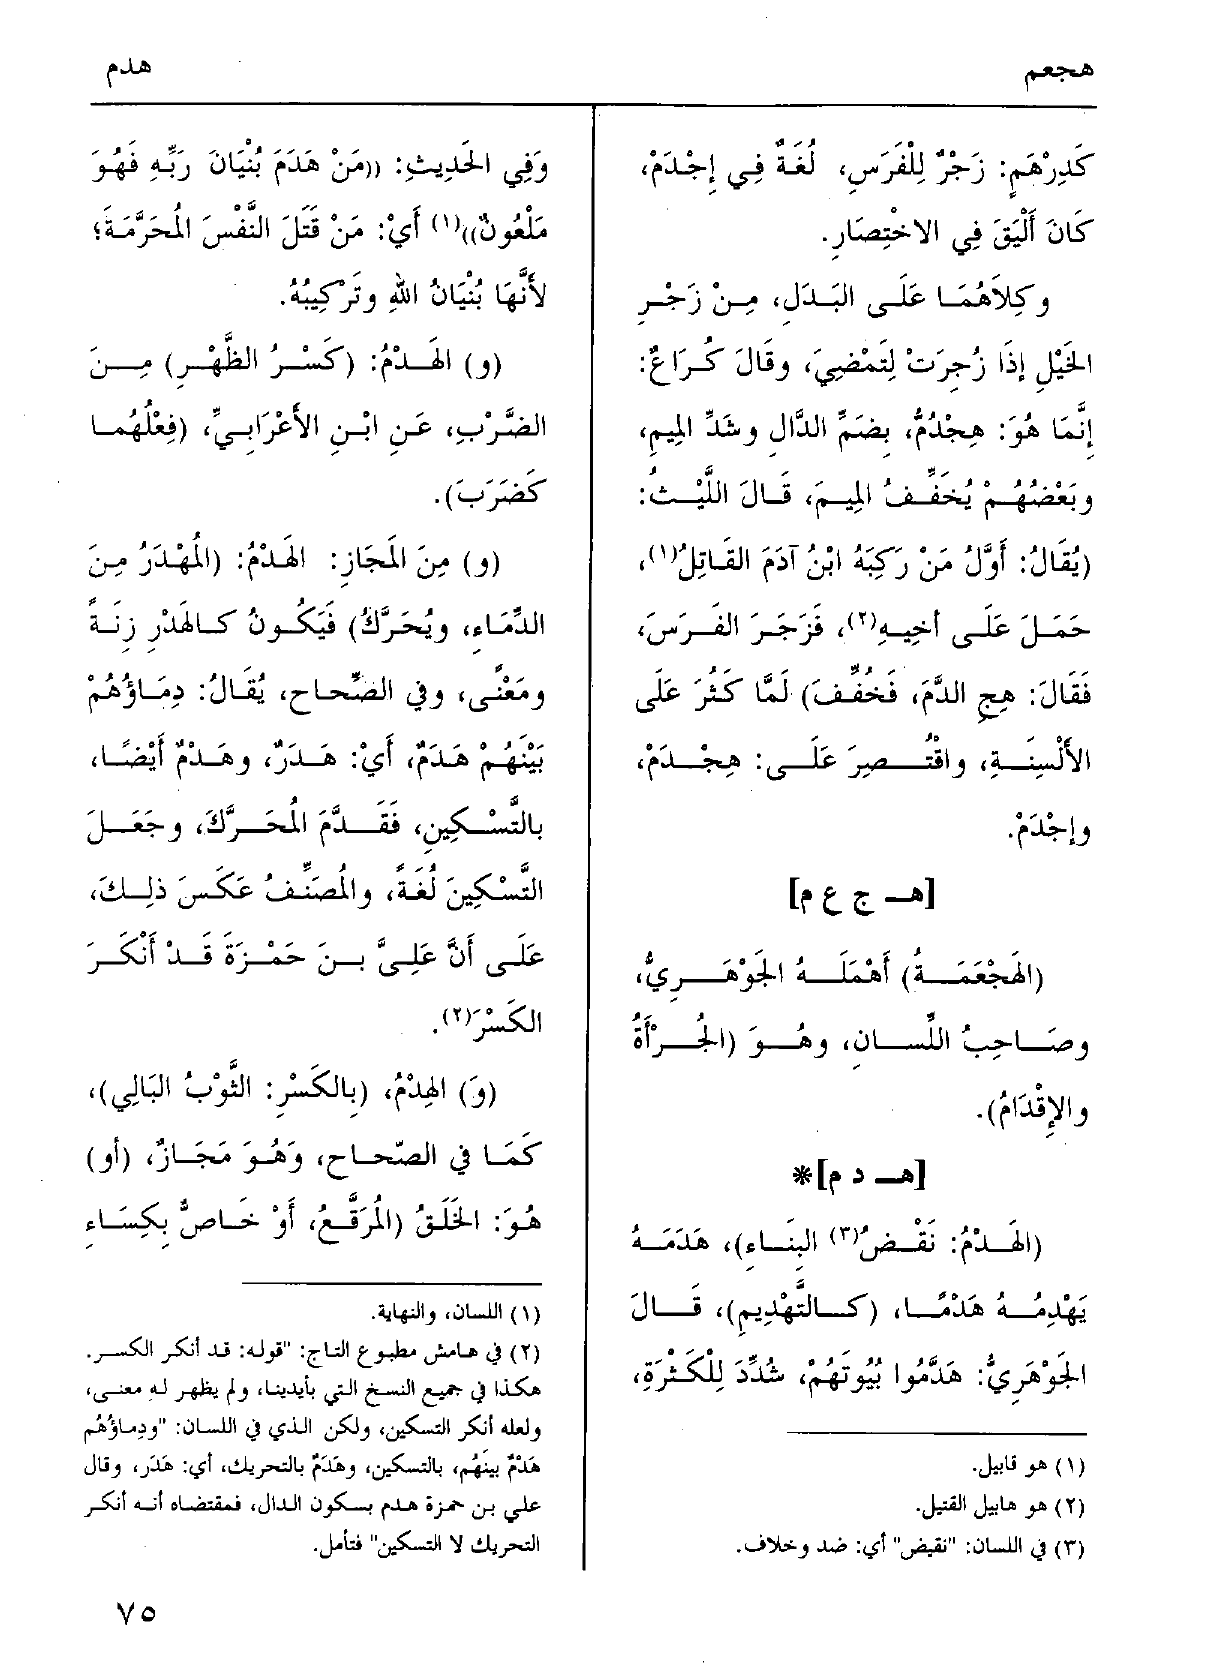 هجعم
هدم
كَدِرْهَمٍ: زَجْرٌ لِلْفَرَسِ، لُغَةٌ فِي إِجْدَمْ،
كَانَ أَلْيَقَ فِي الاخْتِصَارِ.
وكِلاَهُمَا عَلَى البَدَلِ، مِنْ زَجْرِ
الخَيْلِ إِذَا زُجِرَتْ لِتَمْضِيَ، وقَالَ كُرَاعٌ:
إنَّمَا هُوَ: هِجْدُمٌّ، بِضَمِّ الدَّالِ وشَدِّ المِيمِ،
وبَعْضُهُمْ يُخَفِّفُ المِيمَ، قَالَ اللَّيْثُ:
(يُقَالُ: أَوَّلُ مَنْ رَكِبَهُ ابْنُ آدَمَ القَاتِلُ(١)،
حَمَلَ عَلَى أَخِيهِ(٢)، فَزَجَرَ الفَرَسَ،
فَقَالَ: هِجِ الدَّمَ، فَخُفِّفَ) لَمَّا كَثُرَ عَلَى
الأَلْسِنَةِ، واقْتُصِرَ عَلَى: هِجْدَمْ،
وإجْدَمْ.
[هـ ج ع م]
(الهَجْعَمَةُ) أَهْمَلَهُ الجَوْهَرِيُّ،
وصَاحِبُ اللِّسَانِ، وهُوَ (الجُرْأَةُ
والإِقْدَامُ).
[هـ د م]*
(الهَدْمُ: نَقْضُ(٣) البِنَاءِ)، هَدَمَهُ
يَهْدِمُهُ هَدْمًا، (كَالتَّهْدِيمِ)، قَالَ
الجَوْهَرِيُّ: هَدَّمُوا بُيُوتَهُمْ، شُدِّدَ لِلْكَثْرَةِ،
(١) هو قابيل.
(٢) هو هابيل القتيل.
(٣) في اللسان: "نقيض" أي: ضد وخلاف.
وَفِي الحَدِيثِ: ((مَنْ هَدَمَ بُنْيَانَ رَبِّهِ فَهُوَ
مَلْعُونٌ))(١) أَيْ: مَنْ قَتَلَ النَّفْسَ المُحَرَّمَةَ؛
لأَنَّهَا بُنْيَانُ اللهِ وتَرْكِيبُهُ.
(و) الهَدْمُ: (كَسْرُ الظَّهْرِ) مِنَ
الضَّرْبِ، عَنِ ابْنِ الأَعْرَابِيِّ، (فِعْلُهُمَا
كَضَرَبَ).
(و) مِنَ المَجَازِ: الهَدْمُ: (المُهْدَرُ مِنَ
الدِّمَاءِ، ويُحَرَّكُ) فَيَكُونُ كَالهَدْرِ زِنَةً
ومَعْنًى، وفي الصِّحاحِ، يُقَالُ: دِمَاؤُهُمْ
بَيْنَهُمْ هَدَمٌ، أَيْ: هَدَرٌ، وهَدْمٌ أَيْضًا،
بالتَّسْكِينِ، فَقَدَّمَ المُحَرَّكَ، وجَعَلَ
التَّسْكِينَ لُغَةً، والمُصَنِّفُ عَكَسَ ذلِكَ،
عَلَى أَنَّ عَلِيَّ بنَ حَمْزَةَ قَدْ أَنْكَرَ
الكَسْرَ(٢).
(وَ) الهِدْمُ، (بِالكَسْرِ: الثَّوْبُ البَالِي)،
كَمَا في الصّحاحِ، وَهُوَ مَجَازٌ، (أو)
هُوَ: الخَلَقُ (المُرَقَّعُ، أَوْ خَاصٌّ بِكِسَاءِ
(١) اللسان، والنهاية.
(٢) في هامش مطبوع التاج: "قوله: قد أنكر الكسر.
هكذا في جميع النسخ التي بأيدينا، ولم يظهر له معنى،
ولعله أنكر التسكين، ولكن الذي في اللسان: "ودماؤُهُم
هَدْمٌ بينَهُم، بالتسكين، وهَدَمٌ بالتحريك، أي: هَدَر، وقال
علي بن حمزة هدم بسكون الدال، فمقتضاه أنه أنكر
التحريك لا التسكين" فتأمل.
٧٥